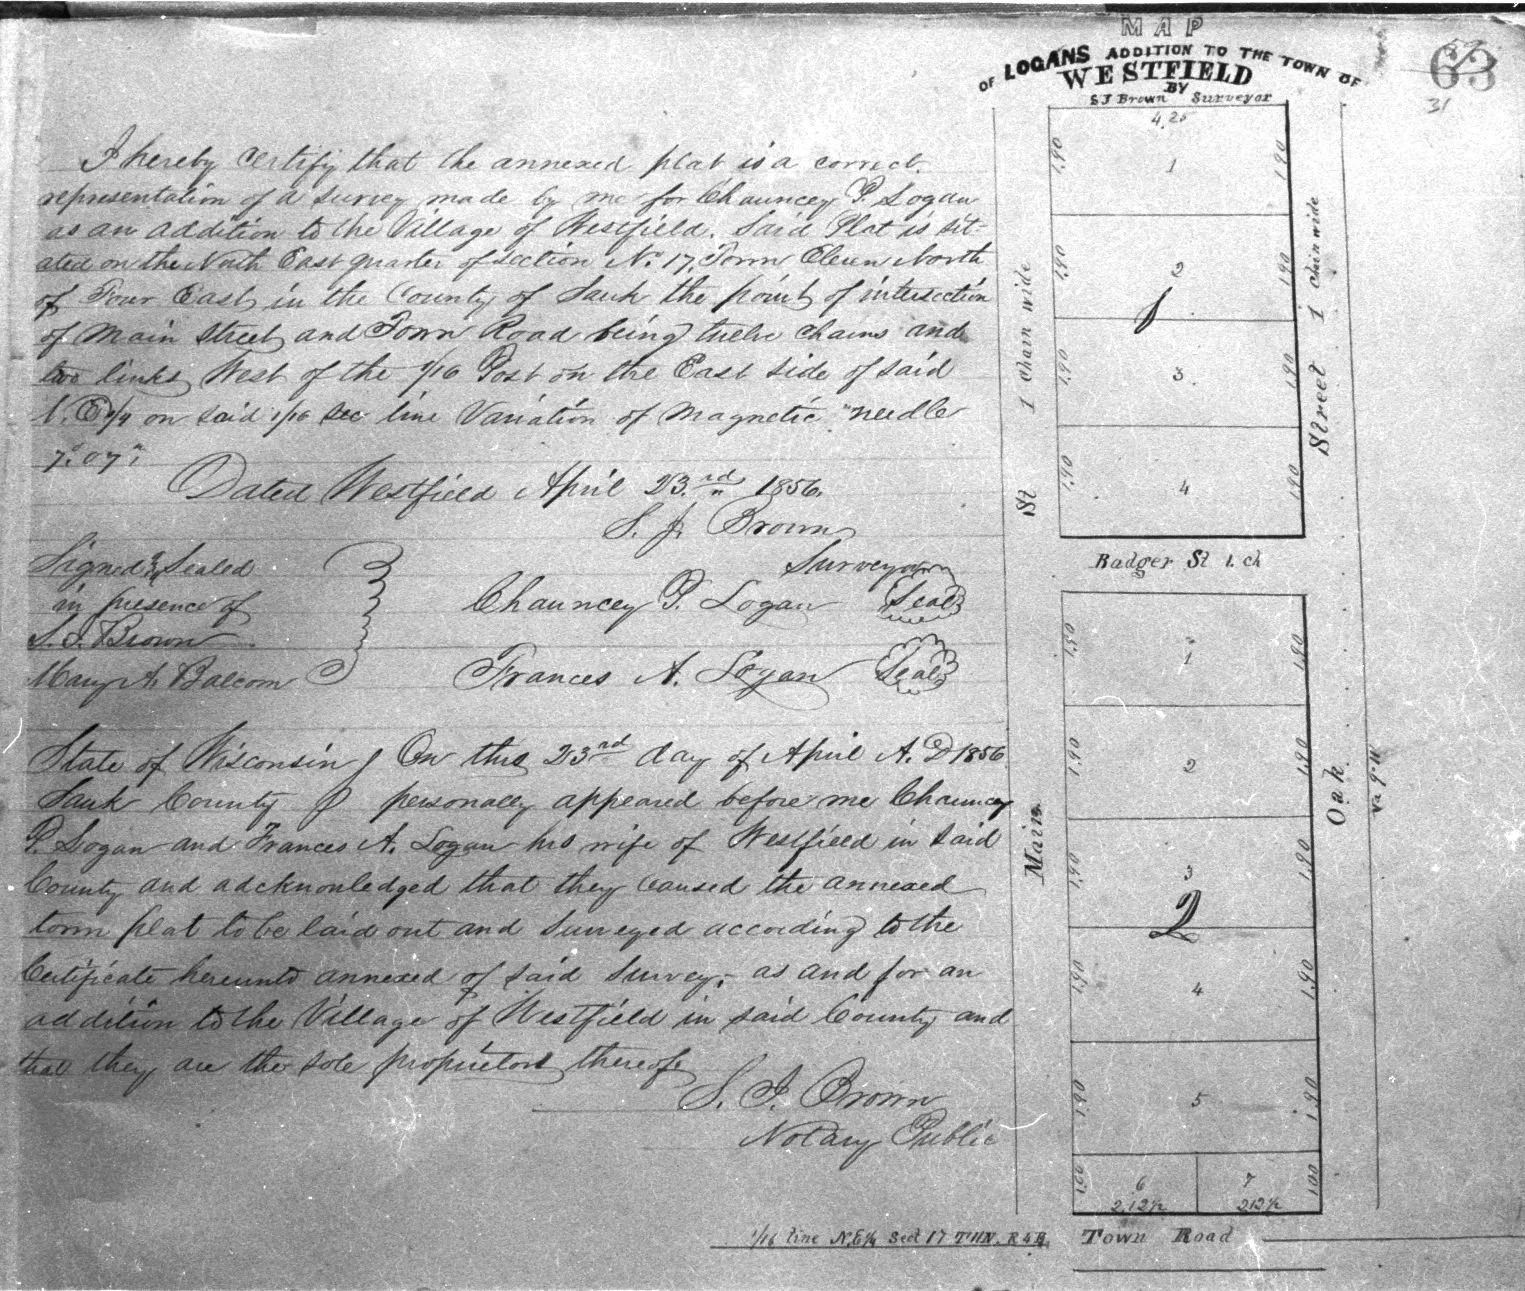 MAP
OF LOGANS ADDITION TO THE TOWN OF
WESTFIELD
BY
S J Brown Surveyor
63
31
I hereby certify that the annexed plat is a correct
representation of a survey made by me for Chauncey P. Logan
as an addition to the Village of Westfield. Said Plat is sit-
ated on the North East quarter of section No 17, Town Eleven North
of Four East, in the County of Sauk the point of intersection
of Main Street and Town Road being twelve chains and
two links West of the 1/16 Post on the East side of said
N. E 1/4 on said 1/16 sec line Variation of Magnetic needle
7° 07"
Dated Westfield April 23rd 1856.
S. J. Brown
Surveyor
Signed & Sealed
in presence of
S. J. Brown
Mary A Balcom
Chauncey P. Logan Seal
Frances A. Logan Seal
State of Wisconsin } On this 23rd day of April A.D 1856
Sauk County } personally appeared before me Chauncey
P. Logan and Frances A. Logan his wife of Westfield in said
County and adcknowledged that they caused the annexed
town plat to be laid out and surveyed according to the
Certificate hereunto annexed of said survey, as and for an
addition to the Village of Westfield in said County and
that they are the sole proprietors thereof.
S. J. Brown
Notary Public
4,25
1.90 1 1.90
1.90 2 1.90
1
1.90 3 1.90
1.90 4 1.90
Badger St 1. ch
1.90 1 1.90
1.90 2 1.90
1.90 3 1.90
2
1.90 4 1.90
1.90 5 1.90
1.00 6 7 1.00
2,12½ 2,12½
Main St 1 chain wide
Oak Street 1 chain wide
1/16 line N.E¼ Sect 17 T11N. R4E, Town Road